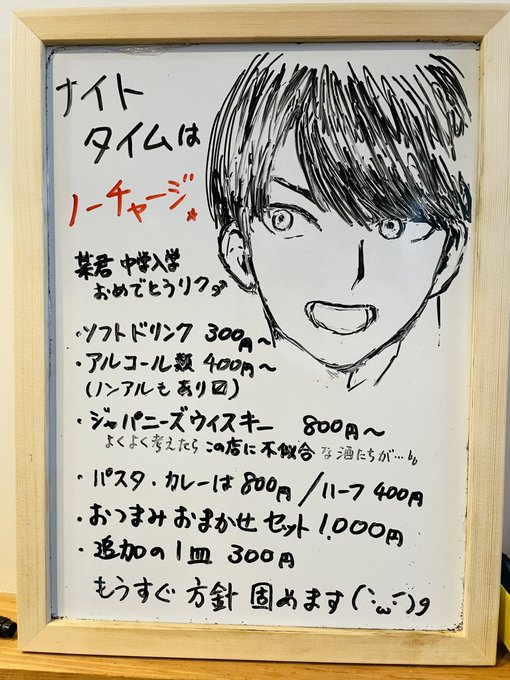 ナイト
タイムは
ノーチャージ
某君 中学入学
おめでとうリク
・ソフトドリンク 300円〜
・アルコール類 400円〜
(ノンアルもあり〼)
・ジャパニーズウィスキー 800円〜
よくよく考えたら この店に 不似合な 酒たちが…
・パスタ・カレーは 800円 /ハーフ 400円
・おつまみ おまかせ セット 1,000円
・追加の1皿 300円
もうすぐ 方針 固めます(`・ω・´)9